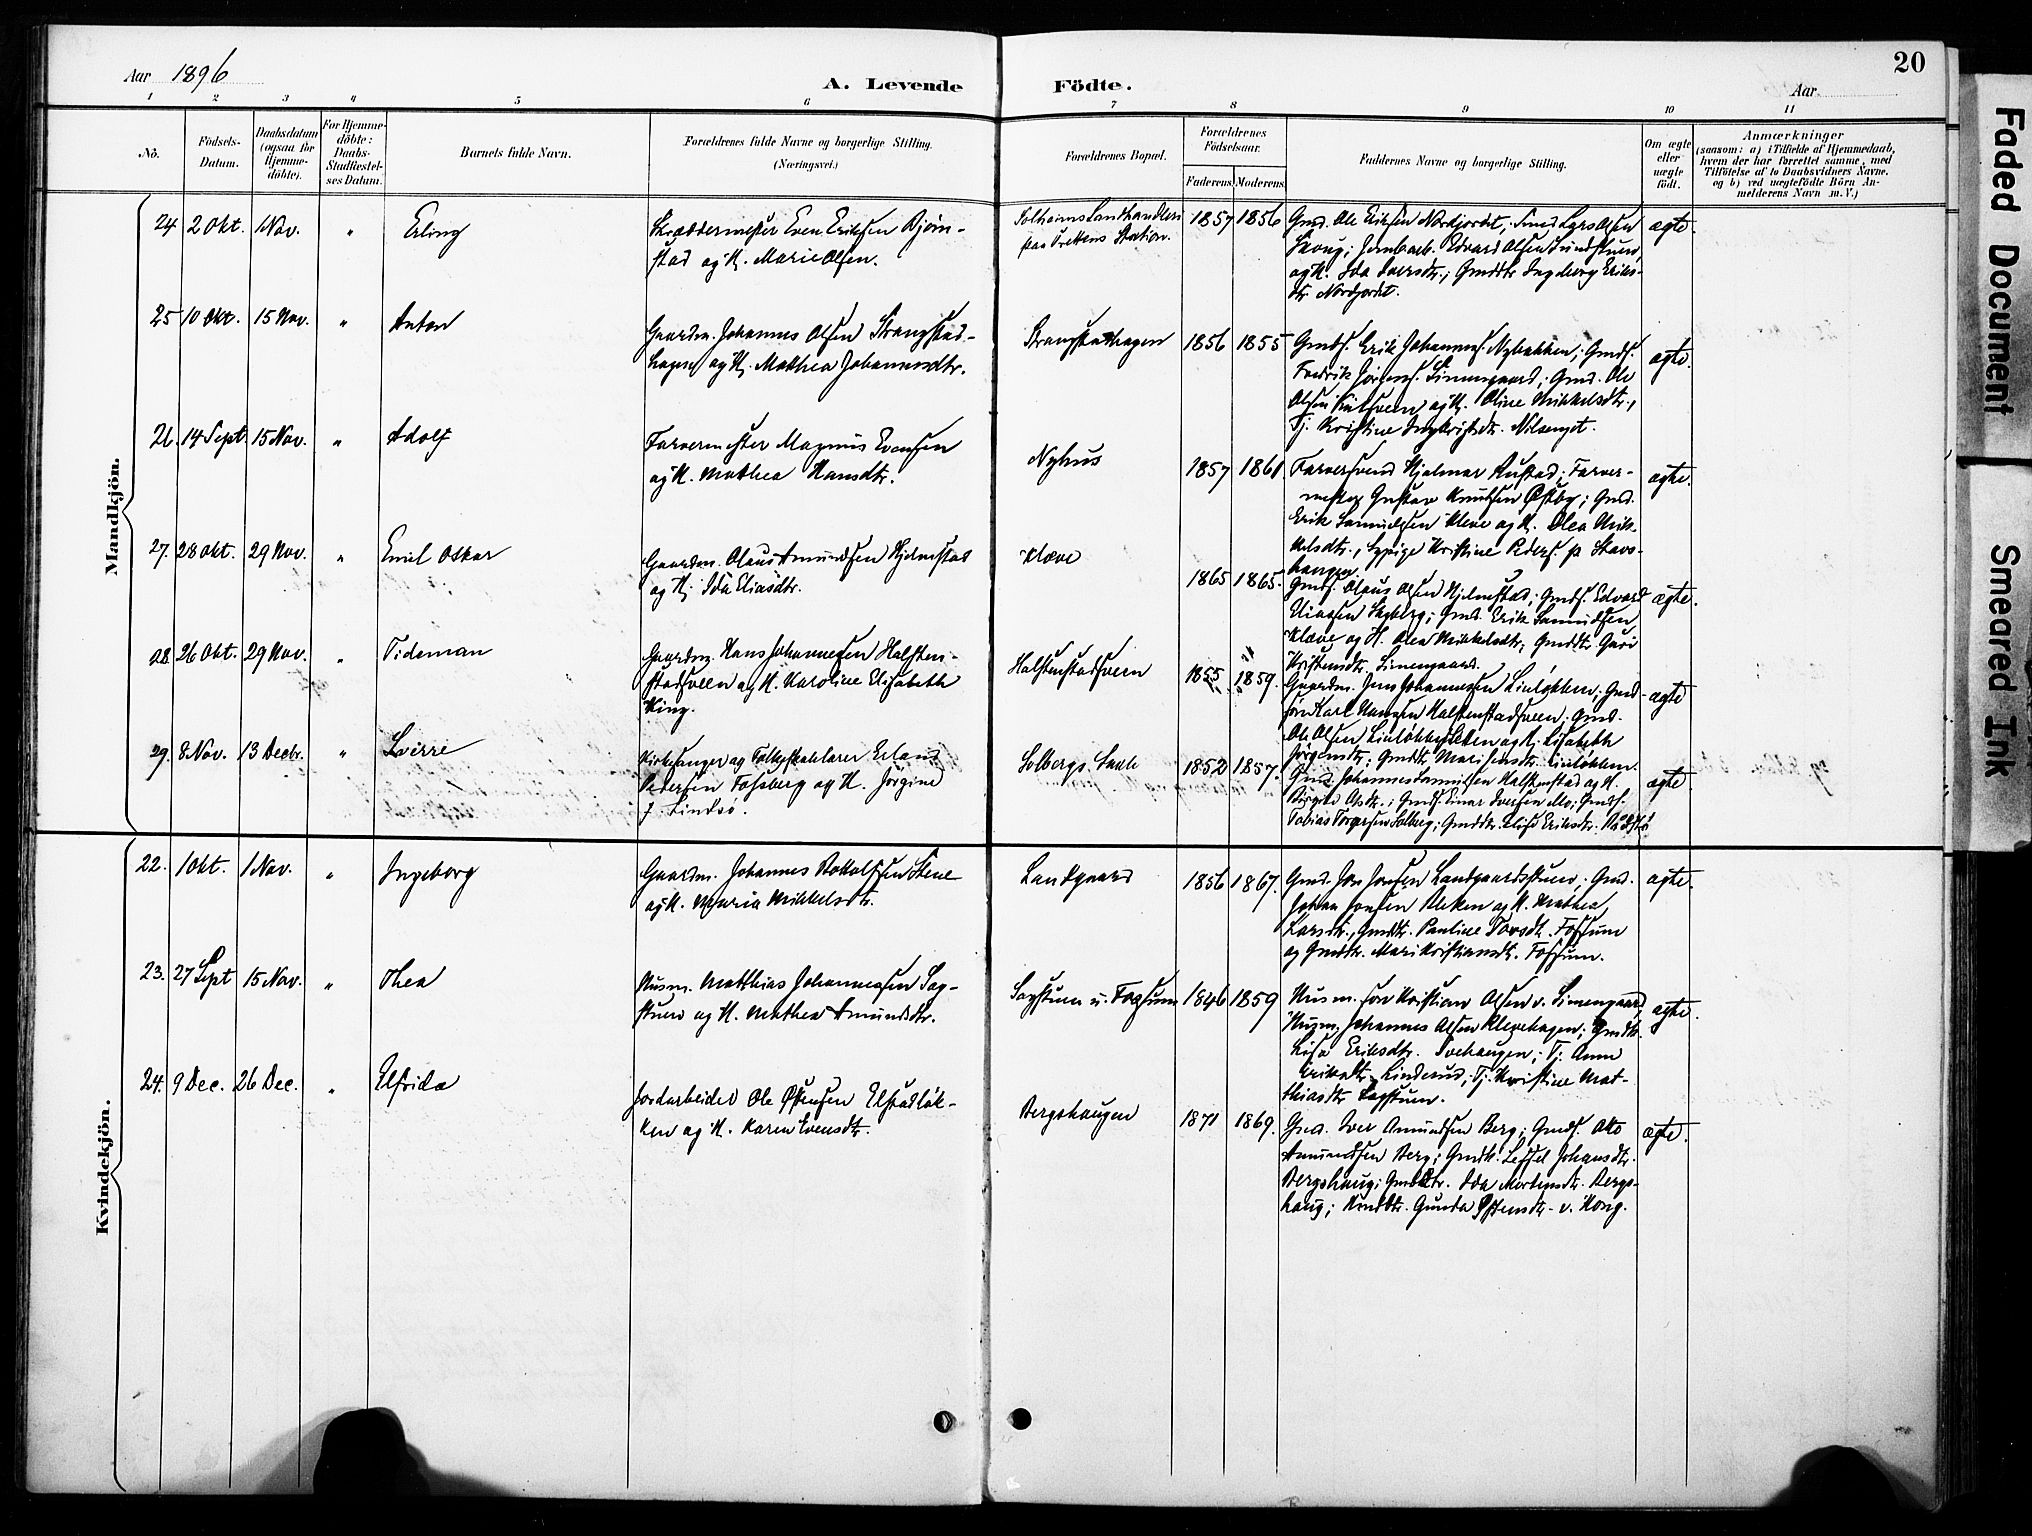 Aar 1896
A. Levende Födte.
Aar
20
1 2 3 4 5 6 7 8 9 10 11
No.
Födsels-Datum.
Daabsdatum (ogsaa for Hjemmedöbte).
For Hjemmedöbte: Daabs-Stadfæstelses Datum.
Barnets fulde Navn.
Forældrenes fulde Navne og borgerlige Stilling.
(Næringsvei.)
Forældrenes Bopæl.
Forældrenes Födselsaar.
Faderens Moderens
Faddernes Navne og borgerlige Stilling.
Om ægte eller uægte födt.
Anmærkninger
(saasom: a) i Tilfælde af Hjemmedaab, hvem der har forrettet samme, med Tilföielse af to Daabsvidners Navne, og b) ved uægtefödte Börn Anmelderens Navn m. V.)
Mandkjön.
24 2 Okt. 1 Nov. " Erling
Skræddermester Even Eriksen Bjørn-
stad og H. Marie Olsen.
Solheims Landhandleri
paa Trettens Station.
1857 1856
Gmd. Ole Eriksen Nordjordet; Smed Lars Olsen
Skoug; Jernbarb. Edvard Olsen Sundstuen,
og H. Ida Iversdtr.; Gmddtr Ingeborg Eriks-
dtr Nordjordet.
ægte.
25 10 Okt. 15 Nov. " Anton
Gaardm. Johannes Olsen Strangstad-
hagen og H. Mathea Johannesdtr.
Strangstadhagen
1856 1855
Gmds. Erik Johanness. Nybakken; Gmds.
Fredrik Jörgens. Simengaard; Gmd. Ole
Olsen og H. Oline Mikkelsdtr.,
Tj. Kristine Nilsenget.
ægte.
26. 14 Sept. 15 Nov. " Adolf
Farvermester Magnus Evensen
og H. Mathea Hansdtr.
Nyhus
1857 1861.
Farversvend Hjalmar Rustad; Farver-
mester Gustav Knutsen Østby; Gmd.
Erik Samuelsen Kleve og H. Olea Mik-
kelsdtr., Sypige Kristine Peders. p Stavs-
haugen.
ægte.
27. 28 Okt. 29 Nov. " Emil Oskar
Gaardm. Olaus Amundsen Hjelmstad
og H. Ida Eliasdtr.
Klæve
1865 1865.
Gmds. Olaus Olsen Hjelmstad; Gmds. Edvard
Eliassen Skyberg; Gmd. Erik Samuelsen
Klæve og H. Olea Mikkelsdtr; Gmddtr Guri
Kristensdtr Simengaard.
ægte.
28. 26 Okt. 29 Nov. " Tideman
Gaardm. Hans Johannesen Halsten-
stadsveen og H. Karoline Elisabeth
King.
Halstenstadsveen
1855 1859.
Gaardm. Jens Johannesen Linløkken; Gmd-
søn Karl Hansen Halstenstadsveen; Gmd.
Ole Olsen og H. Lisabeth
Jörgensdtr; Gmddtr Mari Jensdtr. Linløkken.
ægte
29. 8 Nov. 13 Decbr. " Sverre
Kirkesanger og Folkeskolelærer Erland
Pedersen Fossberg og H. Jørgine
J. Lindsø.
Solbergs Skole
1852 1857.
Gmd. Johannes Samuelsen Halstenstad og H.
Birgit Olsdtr.; Gmds. Einar Iversen Mo; Gmds.
Tobias Torgersen Solberg; Gmddtr. Elise Eriksdtr.
ægte
Kvindekjön.
22. 1 Okt. 1 Nov. " Ingeborg
Gaardm. Johannes Botolfsen Stene
og H. Maria Mikkelsdtr.
Landgaard
1856 1867.
Gmd. Jon Jonsen Landgaardsstuen; Gmd.
Johan Jonsen Kleken og H. Mathea
Larsdtr., Gmddtr. Pauline Torsdtr. Fossum
og Gmddtr. Mari Kristiansdtr. Fossum.
ægte.
23. 27 Sept 15 Nov. " Thea
Husm. Matthias Johannessen Sag-
stuen og H. Mathea Amundsdtr.
Sagstuen u. Fossum
1846 1859
Husm.søn Kristian Olsen v. Simengaard,
Husm. Johannes Olsen Klevehagen; Gmdtr.
Lise Eriksdtr. Svehaugen; Tj. Anne
Eriksdtr. Linderud; Tj. Kristine Mat-
thiasdtr Sagstuen.
ægte.
24. 9 Dec. 26 Dec. " Elfrida
Jordarbeider Ole Østensen Elstadløk-
ken og H. Karen Evensdtr.
Bergshaugen
1871 1869.
Gmd. Iver Amundsen Berg; Gmds. Otto
Amundsen Berg; Gmdk. Johansdtr.
Bergshaug; Gmddtr. Ida Mortensdtr. Bergs-
haug; Gmddtr. Gunda Østensdtr. v. Kong.
ægte.
Faded Document
Smeared Ink